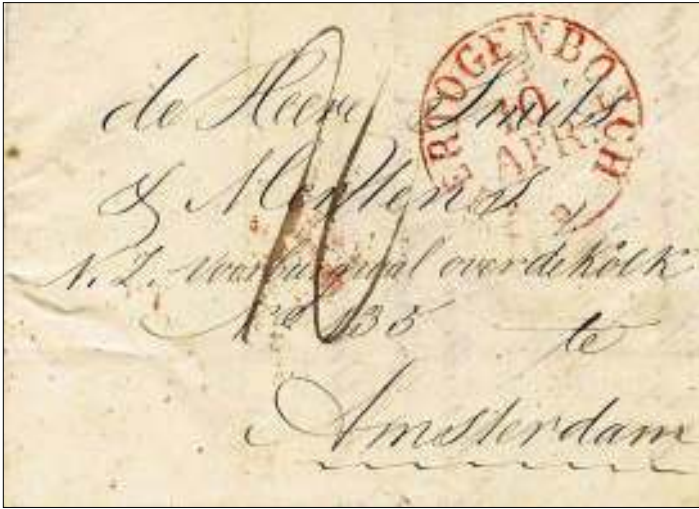 ERTOGENBOSCH
10
APR
de Heere Smits
& Mertens
N. Z. Voorburgwal over de Kolk
No 135
te
Amsterdam